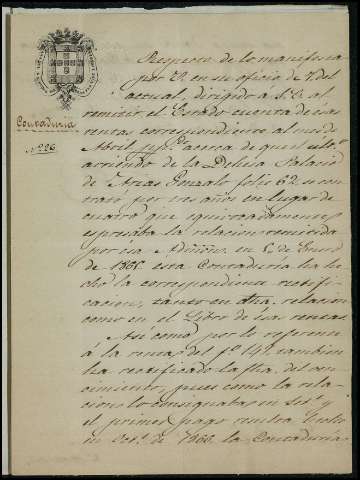 Contaduría
Nº 26.
Respecto de lo manifesta
por V. en su oficio de 7 del
actual, dirigido á S. E. al
remitir el Estado cuenta de esas
rentas correspondiente al mes de
Abril, ppº acerca de que el ultº
arriendo de la Dehesa Palacio
de Arias Gonzalo folio 62 se con
trato por tres años en lugar de
cuatro que equivocadamente
espresaba la relacion remitida
por esa Admon. en 5 de Enero
de 1866 esta Contaduría ha he
cho la correspondiente rectifi
cacion, tanto en dha. relacion
como en el Libro de esas rentas.
Asi como por lo referente
á la renta del fº 141. tambien
ha rectificado la fha. del ven
cimiento, pues como la rela
cion lo consignaba en Setº y
el primer pago contra hecho
en Octe. de 1866. la Contaduría